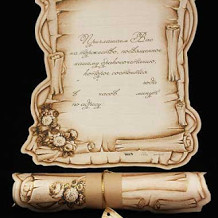 Приглашаем Вас
на торжество, посвященное
нашему бракосочетанию,
которое состоится
" года
в часов минут
по адресу: